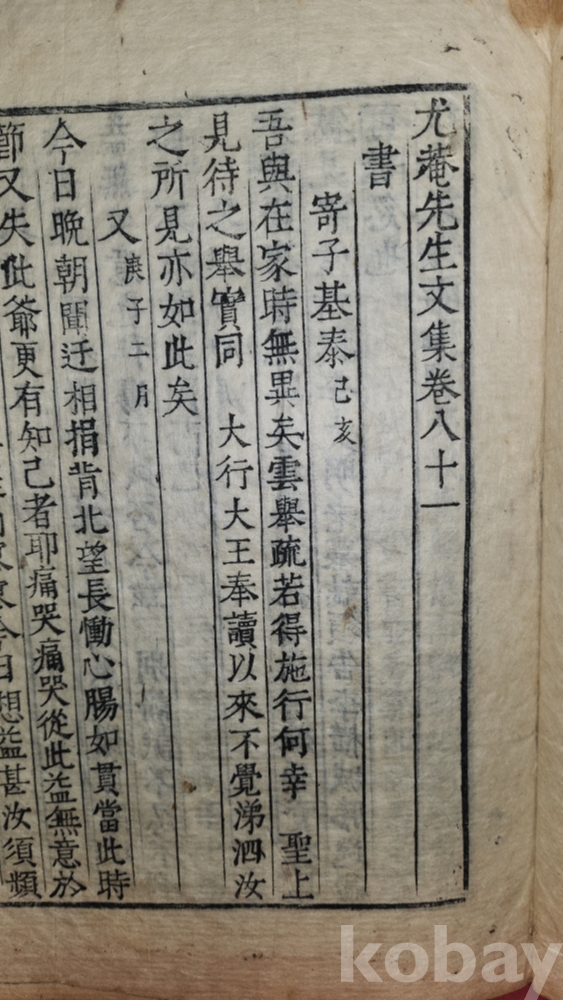 尤菴先生文集卷八十一
書
寄子基泰 己亥
吾與在家時無異矣雲舉疏若得施行何幸 聖上
見待之舉實同 大行大王奉讀以來不覺涕泗汝
之所見亦如此矣
又 庚子二月
今日晩朝聞迂相捐背北望長慟心腸如貫當此時
節又失此爺更有知己者耶痛哭痛哭從此益無意於
今日想益甚汝須類
kobay